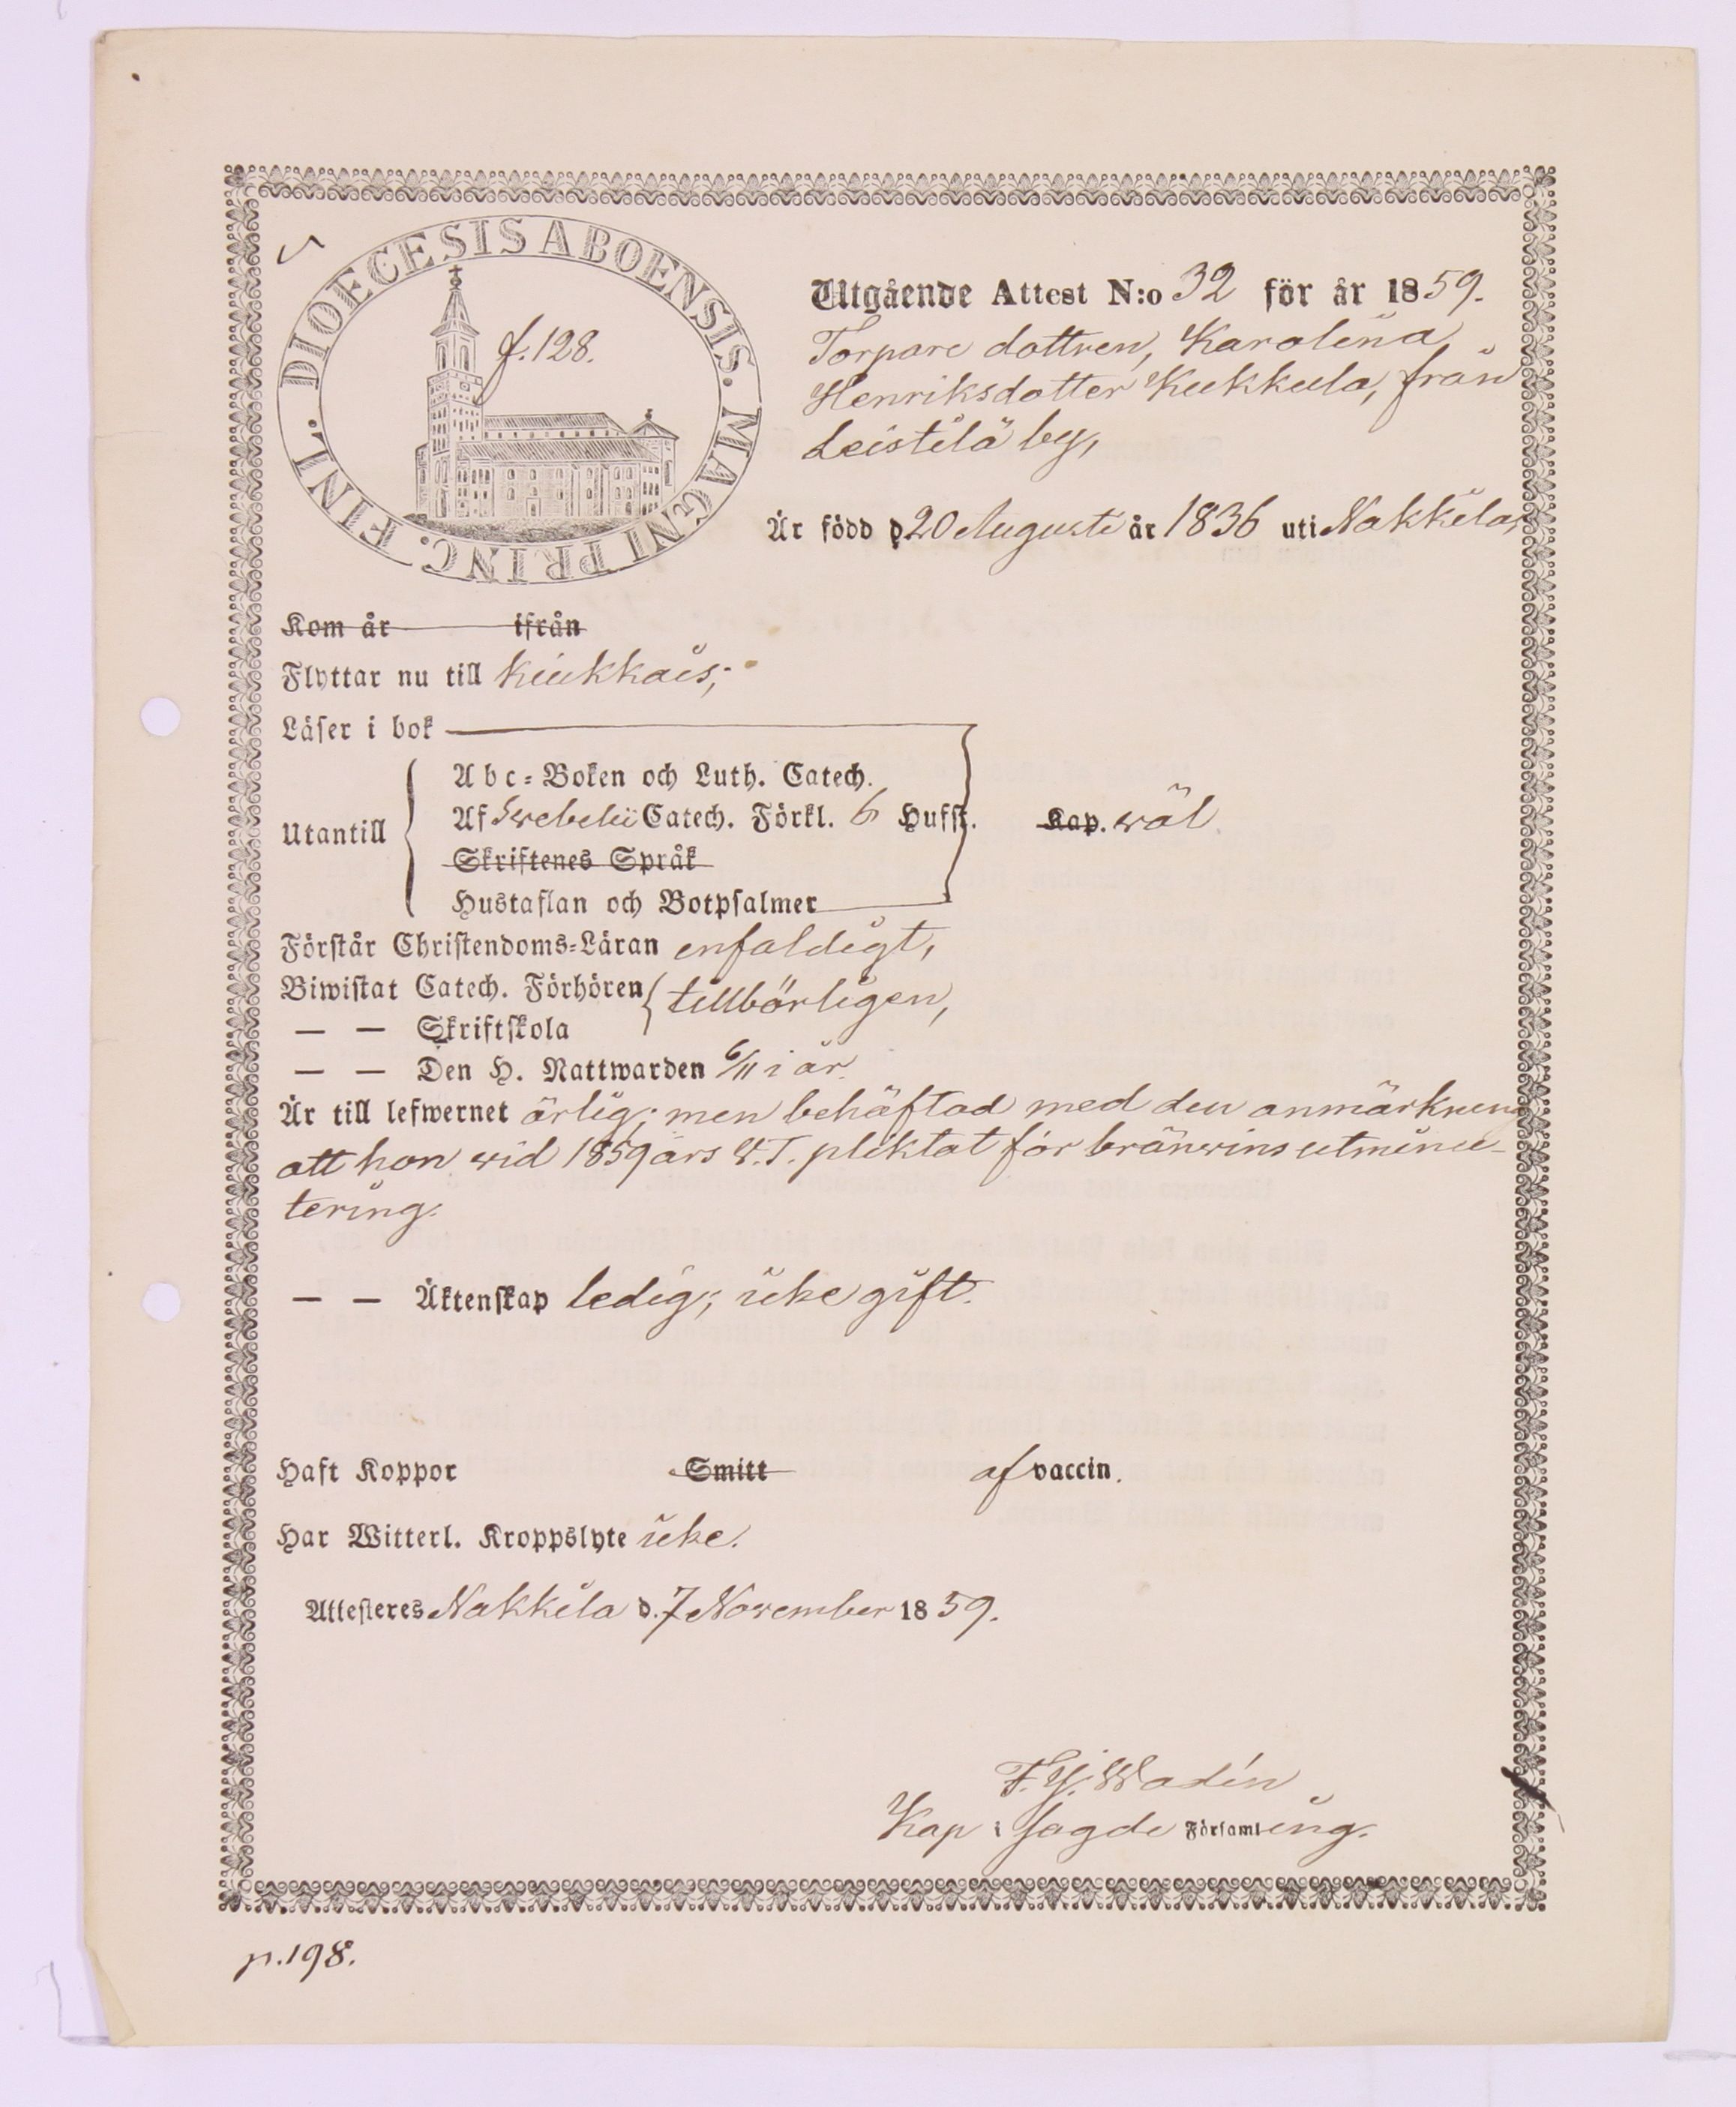 DIOECESIS ABOENSIS. MAGNI PRINC. FINL.
f. 128.
Utgående Attest N:o 32 för år 1859.
Torpare dottren, Karolina
Henriksdotter Kukkula, från
Leistilä by,
Är född d 20 Augusti år 1836 uti Nakkila,
Kom år ifrån
Flyttar nu till Kiukkais;
Läser i bok
Utantill
Abc-Boken och Luth. Catech.
Af Swebelii Catech. Förkl. 6 Hufst. Kap. wäl
Skriftenes Språk
Hustaflan och Botpsalmer
Förstår Christendoms-Läran enfaldigt,
Biwistat Catech. Förhören tillbörligen,
— — Skriftskola
— — Den H. Nattwarden 6/11 i år.
Är till lefwernet ärlig; men behäftad med den anmärkning
att hon wid 1859 års W.T. pliktat för bränwins utminu-
tering.
— — Äktenskap ledig; icke gift.
Haft Koppor Smitt af vaccin.
Har Witterl. Kroppslyte icke.
Attesteres Nakkila d. 7 November 1859.
Wadén
Kap i Sagde Församling.
p. 198.